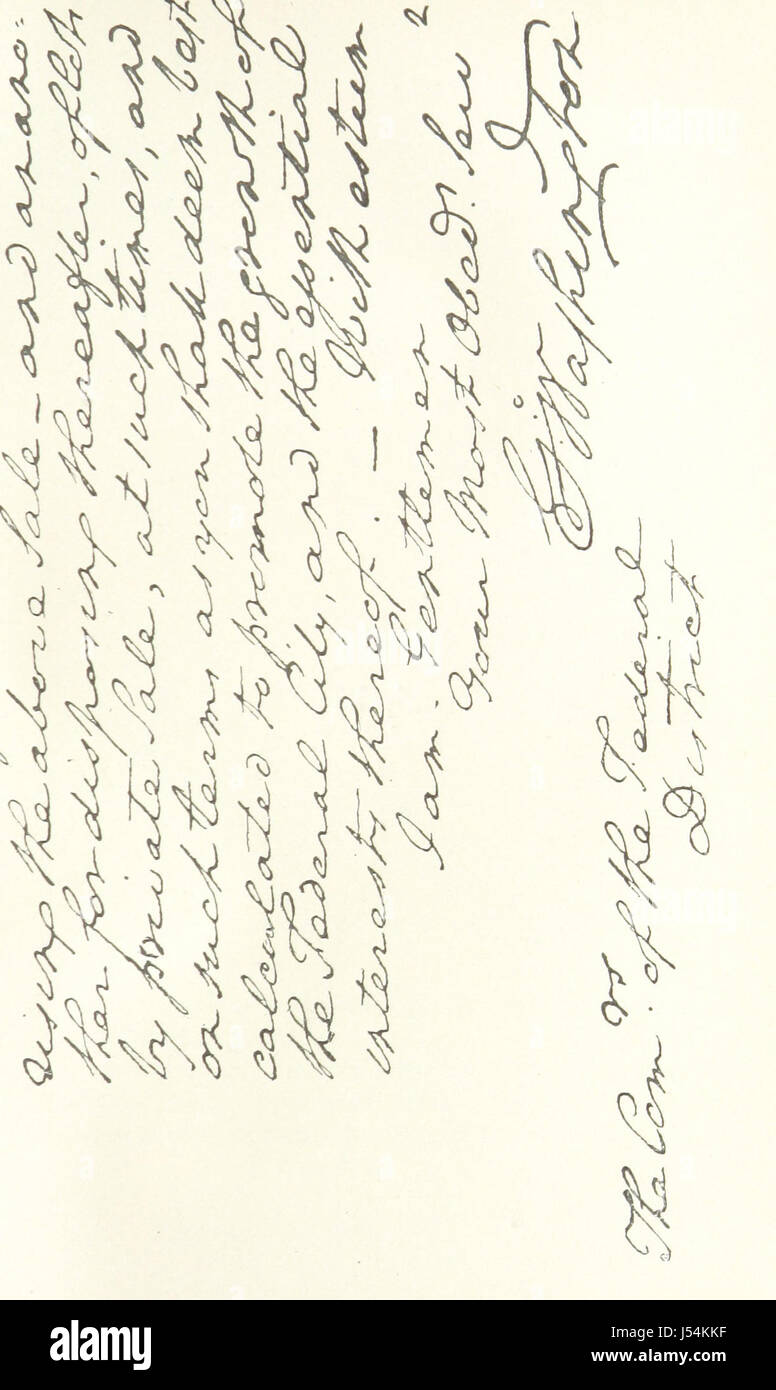 rising the above sale – and ano-
ther for disposing thereafter, of lots
by private sale, at such times, and
on such terms as you shall deem best
calculated to promote the growth of
the Federal City, and the essential
interests thereof. – With esteem
I am. Gentlemen
Your Most Obedt. Serv
Go: Washington
The Comrs. of the Federal
District
alamy
Image ID: J54KKF
www.alamy.com